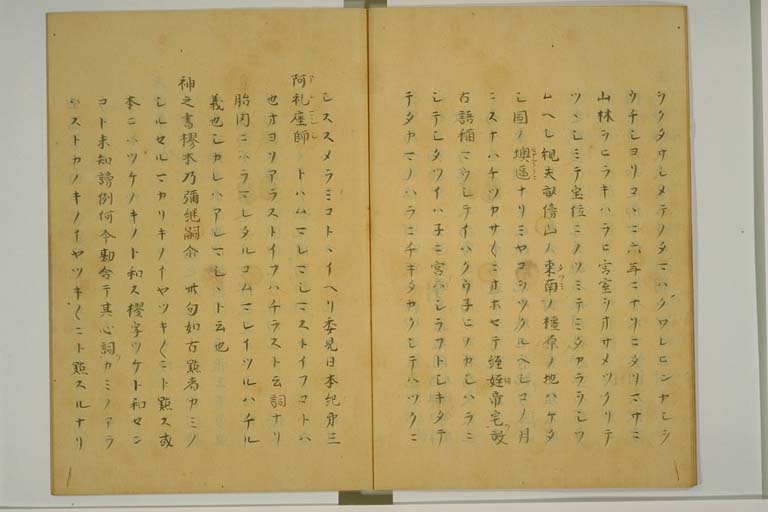 シクタサシメテノタマハクワレヒンカシヲ
ウチシヨリコヽニ六年ニナリニタリマサニ
山林ヲヒラキハラヒ宮室ヲオサメツクリテ
ツヽシミテ宝位ニノソミテミタカラヲシツ
ムヘシ観夫畝傍山ノ東南ノ橿原ノ地ハケタ
シ国ノ墺區ナリミヤコツクルヘシコノ月
ニスナハチツカサ〱ニオホセテ経始帝宅
古語稱マウシテイハクウ子ヒノカシハラニ
シテシタツイハ子ニ宮ハシラフトシキタテ
テタカマノハラニチキタカクシテハツクニ
シススメラミコトヽイヘリ委見日本紀第三
阿礼座師 トハムマレマシマストイフコトハ
也オヨソアラストイフハチラスト云詞ナリ
胎内ニハラマレタルコムマレイツルハチル
義也シカレハアレマシヽト云也
神之書樛木乃彌継嗣尒 此句如古點者カミノ
シルセルマカリキノイヤツキ〱ニト點ス或
本ニハツケノキノト和ス樛字ツケト和セン
コト未知謗例何今勘合テ其心詞カミノアラ
ハストカノキノイヤツキ〱ニト點スルナリ